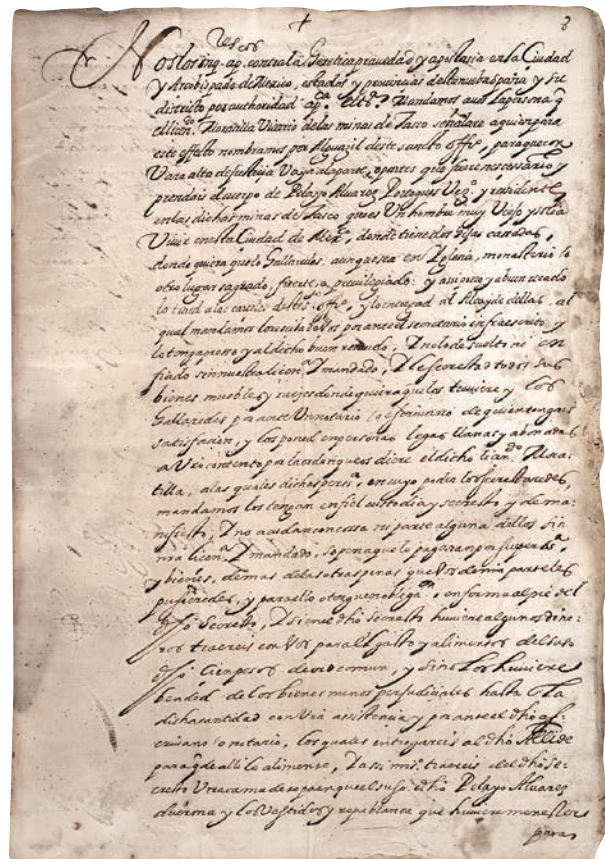 8
Nos los inqres apcos contra la heretica pravedad y apostasia en la Ciudad
y Arcobispado de Mexico, estados y provincias de la nueva españa y su
distrito por authoridad apca. Mandamos a vos la persona q̃
el licendo Moratilla Vicario de las minas de Tasco señalare a quien para
este effecto nombramos por Alguazil deste sancto offo, para que con
Vara alta de Justicia Vaya a la parte, o partes que fuere necessario y
prendais el cuerpo de Pelayo Alvarez Portogues Vezo y residente
en las dichas minas de Tasco que es Un hombre muy Viejo y solia
Vivir en esta Ciudad de Mexco, donde tiene dos hijas casadas,
donde quiera que lo hallaredes, aunque sea en Yglesia, monasterio (o
otro lugar sagrado, fuerte, o previlegiado: y asi preso y a buen recado
lo traed a las carceles deste so offo, y lo entregad al Alcayde dellas, al
qual mandamos lo reciba de Vos por ante el secretario infraescrito y
lo tenga preso y al dicho buen recaudo, Y no lo de suelto ni en
fiado sin nuestra licena Y mandado, Y le secrestad todos sus
bienes, muebles y raizes donde quiera que los tuviere y los
hallaredes por ante Un notario (o escrivano de quien tengais
satisfacion, y los poned en personas legas llanas y abonadas
a Vro contento por la orden que os diere el dicho licendo Mora-
tilla, a las quales dichas persas, en cuyo poder los secrestaredes,
mandamos los tengan en fiel custodia y secresto y de ma-
nifiesto, Y no acudan con cossa ni parte alguna dellos sin
nra licena Y mandado, so pena que lo pagaran por sus persas,
y bienes, demas de las otras penas que Vos de mia parte les
pusieredes, y para ello otorguen obligaon, en forma al pie del
dho Secresto, Y si en el dho secresto huviere algunos dine-
ros traereis con Vos para el gasto y alimentos del suso
dho Cien pesos de oro comun, y Si no Los huviere
vended de los bienes menos perjudiciales hasta en la
dicha cantidad con Vra assistencia y por ante el dho es-
crivano (o notario, los quales entregareis al dho Allde
para q̃ de alli lo alimente, Y assi mismo traereis del dho se-
cresto Una cama de ropa en que el suso dho Pelayo Alvarez
duerma y los Vestidos y ropa blanca que huviere menester
para